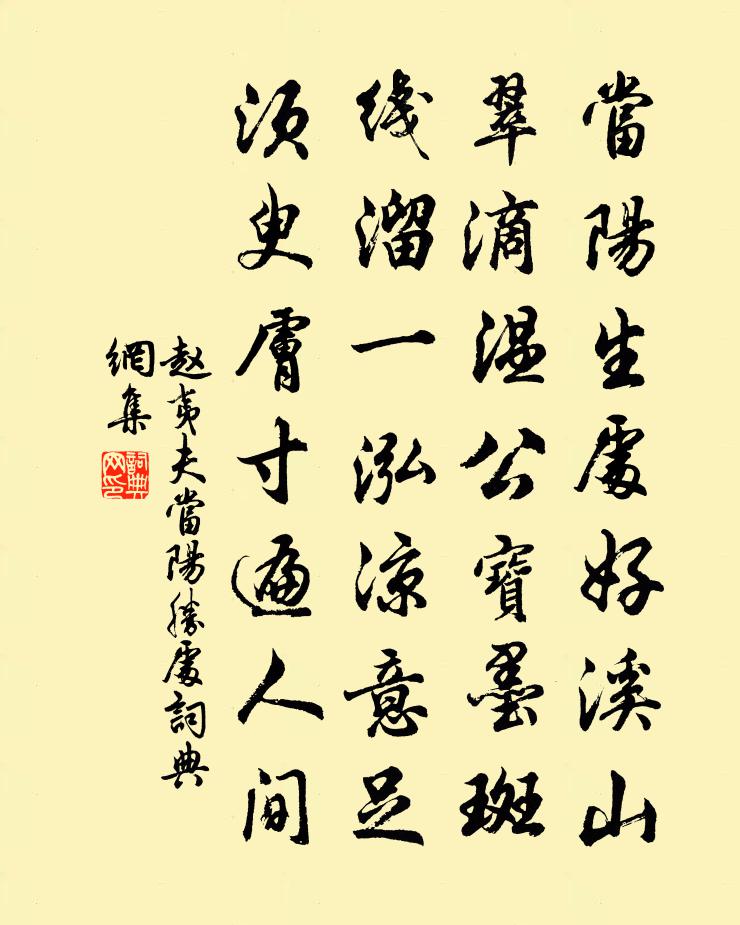 當陽生處好溪山
翠滴温公寶墨斑
綫溜一泓凉意足
須臾膚寸遍人间
赵夷夫當陽勝處詞典
網集
詞典
网印